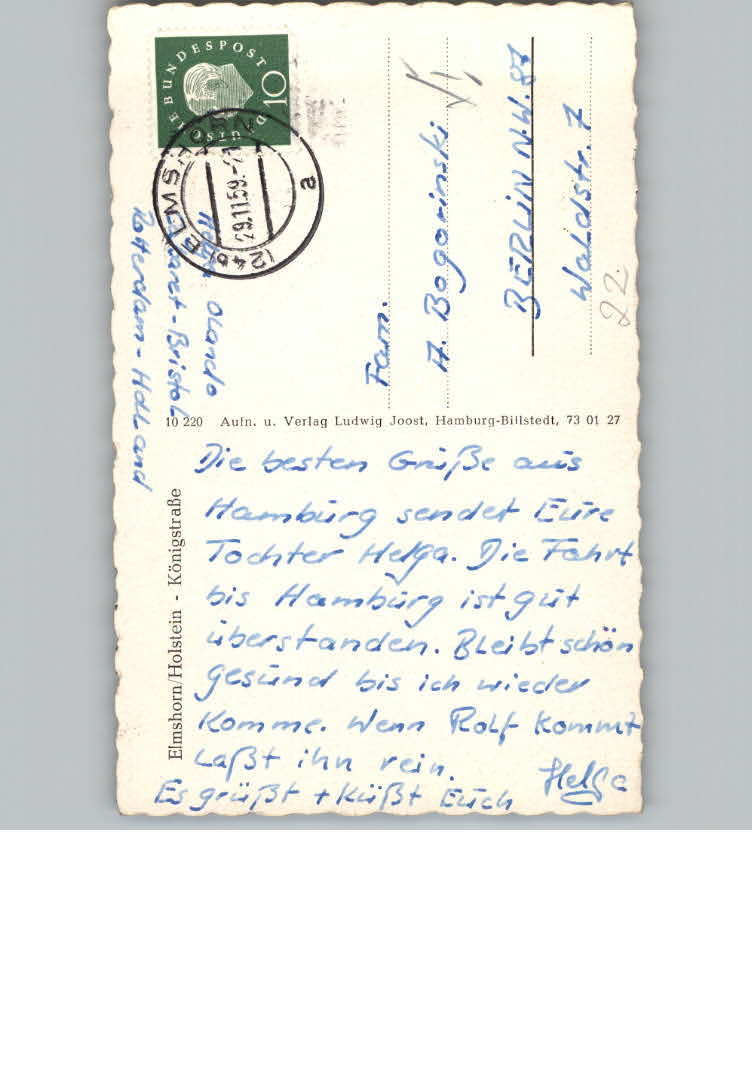 DEUTSCHE BUNDESPOST
10
(24b) ELMSHORN
29.11.59.-21
a
Olando
-Bristol
Rotterdam-Holland
Fam.
A. Bogorinski
BERLIN N.W. 87
Waldstr. 7
22
10 220 Aufn. u. Verlag Ludwig Joost, Hamburg-Billstedt, 73 01 27
Elmshorn/Holstein - Königstraße
Die besten Grüße aus
Hamburg sendet Eure
Tochter Helga. Die Fahrt
bis Hamburg ist gut
überstanden. Bleibt schön
gesund bis ich wieder
komme. Wenn Rolf kommt
Laßt ihn rein.
Es grüßt + küßt Euch Helga